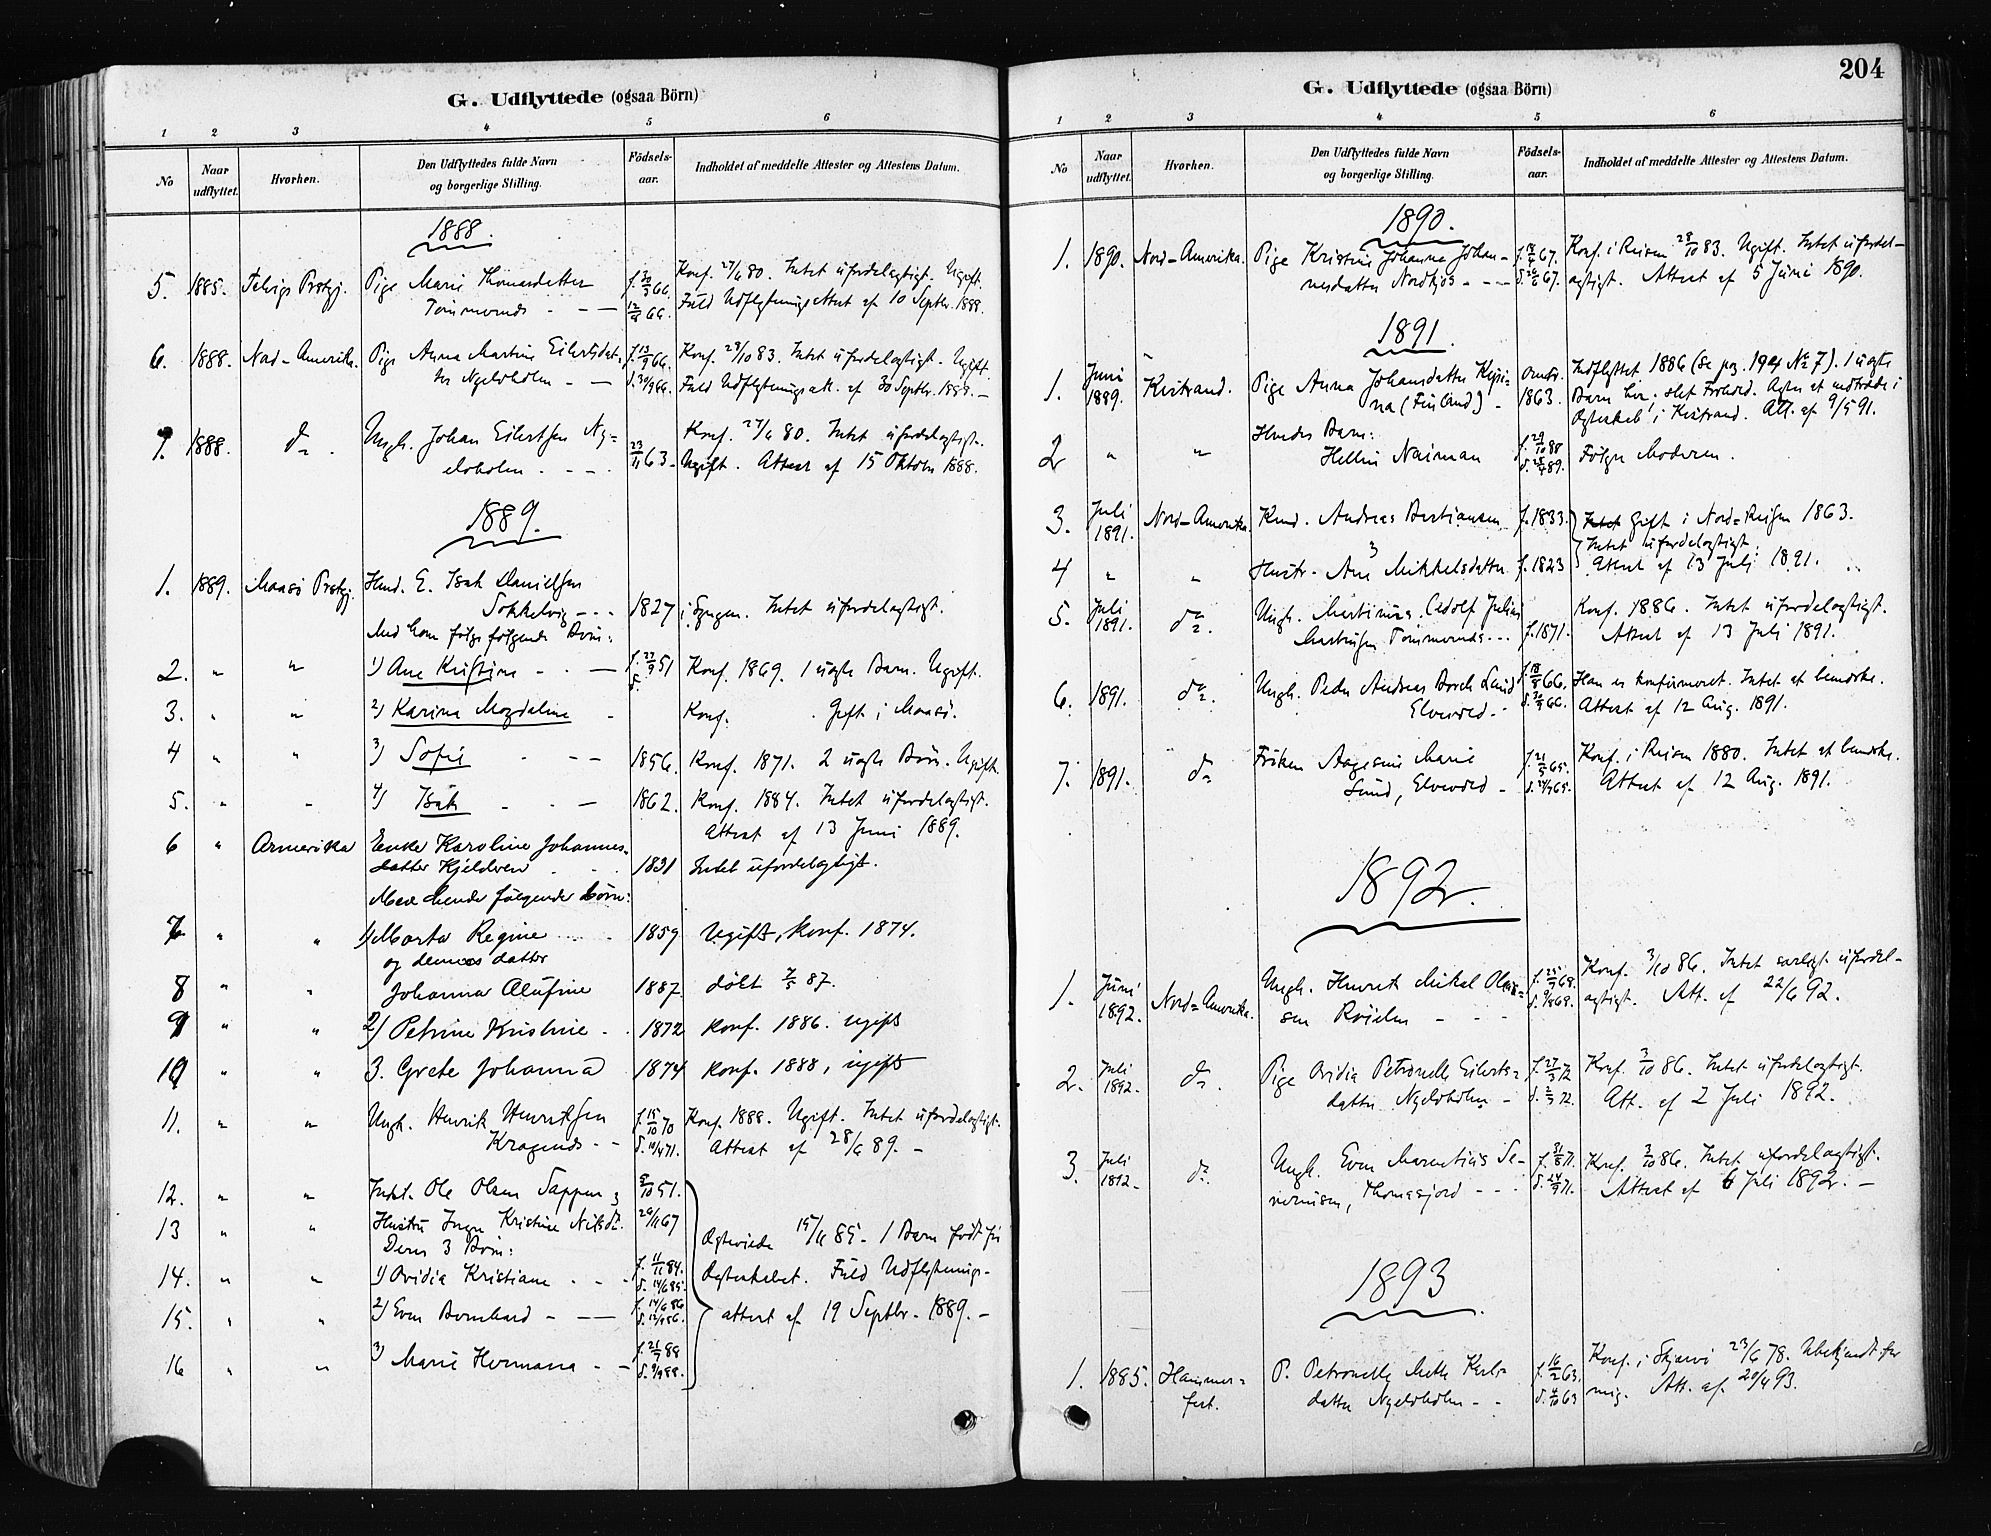 G. Udflyttede (ogsaa Börn)
1 2 3 4 5 6
No Naar udflyttet. Hvorhen. Den Udflyttedes fulde Navn og borgerlige Stilling. Födsels-aar. Indholdet af meddelte Attester og Attestens Datum.
1888.
5. 1885. Prstgj. Pige Marie Thomasdatter f. 66. Konf. 80. Intet ufordelagtigt. Ugift.
12/8 66. Fuld Udflytningsattest af 10 Septbr. 1888.
6. 1888. Nord-Amerika. Pige Anna Martine Eilertsdat- f. 13/9 66. Konf. 28/10 83. Intet ufordelagtigt. Ugift.
ter Ngeloholm - - d. 30/9 66. Fuld Udflytningsatt. af 30 Septbr. 1888. -
7. 1888. do. Ungk. Johan Eilertsen Ng= 23/11 63. Konf. 80. Intet ufordelagtigt.
eloholm - - - Ugift. Attest af 15 Oktober 1888.
1889.
1. 1889. Maasö Prstgj. E. Isak Danielsen
Sokkelvig - - - 1827 i Lyngen. Intet ufordelagtigt.
Med ham følge følgende Börn:
2. " " 1) Ane Kristine - - f. 27/9 51 Konf. 1869. 1 uægte Barn. Ugift.
3. " " 2) Karina Magdaline - Konf. . Gift i Maasö.
4 " " 3) Sofie - - - 1856. Konf. 1871. 2 uægte Börn. Ugift.
5. " " 4) Isak - - - 1862. Konf. 1884. Intet ufordelagtigt.
Attest af 13 Juni 1889.
6 " Amerika Enke Karoline Johannes-
datter Kjelderen 1831 Intet ufordelagtigt.
Med hende følgende börn:
7 " " 1) Marta Regine 1859 Ugift, Konf. 1874.
og dennes datter
8 " " Johanna Alufine 1887 döbt 87.
9 " " 2) Petrine Kristine - 1872 Konf. 1886. ugift
10 " " 3. Grete Johanna 1874 Konf. 1888, ugift
11. " " Ungk. Henrik Henriksen f. 15/10 70 Konf. 1888. Ugift. Intet ufordelagtigt.
Kragenes - - d. 10/4 71. Attest af 28/6 89. -
12. " " Indst. Ole Olsen Sappen & 5/10 51.
13 " " Hustru Inger Kristine Nilsdr. 67 Ægteviede 15/11 85 - 1 Barn født før
Deres 3 Börn:
14. " " 1) Ovidia Kristiane - - f. 11/11 84. Ægteskabet. Fuld Udflytnings-
d. 14/6 85.
15. " " 2) Even Bernhard - - - f. 14/6 86 attest af 19 Septbr. 1889. -
d. 12/9 86.
16 " " 3) Marie Hermana - - f. 88
d. 9/9 88.
204
G. Udflyttede (ogsaa Börn)
1 2 3 4 5 6
No Naar udflyttet. Hvorhen. Den Udflyttedes fulde Navn og borgerlige Stilling. Födsels-aar. Indholdet af meddelte Attester og Attestens Datum.
1890.
1. 1890. Nord-Amerika. Pige Kristine Johanna Johan- f. 67. Konf. i Reisen 28/10 83. Ugift. Intet ufordel-
nesdatter Nordkjos - - - d. 67. agtigt. Attest af 5 Juni 1890.
1891.
1. Juni Kistrand. Pige Anna Johansdatter Omtr. Indflyttet 1886 (se pag. 194 No 7). 1 uægte
1889. (Finland) - 1863. Barn her; slet Forhold. Agter at indtræde i
Ægteskab i Kistrand. Att. af 9/5 91.
Hendes Barn:
2 " " Hellin Naiman f. 29/10 88 Følger Moderen.
d. 89.
3. Juli Nord-Amerika. Andreas Bastiansen f. 1833. Intet Gift i Nord-Reisen 1863.
1891. Intet ufordelagtigt.
4 " " Hustr. Ane Mikkelsdatter f. 1823 Attest af 13 Juli 1891.
5. Juli do. Ungk. Martinus Adolf Julius Konf. 1886. Intet ufordelagtigt.
1891. f. 1871. Attest af 13 Juli 1891.
6. 1891. do. Ungk. Peder Andreas Borch Lund f. 18/8 66. Han er konfirmeret. Intet at bemærke.
Elvevold - d. 66. Attest af 12 Aug. 1891.
7. 1891. do Fröken Aagesine Marie f. 21/5 65. Konf. i Reisen 1880. Intet at bemærke.
Lund, Elvevold - d. 65. Attest af 12 Aug. 1891.
1892.
1. Juni Nord-Amerika. Ungk. Henrik Mikal Olaus- f. 25/7 68. Konf. 3/10 86. Intet særligt ufordel-
1892. sen - - - d. 9/8 68. agtigt. Att. af 22/6 92.
2. Juli do. Pige Ovidia Petronelle Eilerts- f. 27/3 72 Konf. 3/10 86. Intet ufordelagtigt.
1892. datter Ngeloholm - d. 72. Att. af 2 Juli 1892.
3. Juli do. Ungk. Even Marentius Se- f. 31/8 71. Konf. 3/10 86. Intet ufordelagtigt.
1892- verinsen, Thomasjord - - - d. 24/9 71. Attest af 6 Juli 1892. -
1893
1. 1885. Hammer- P. Petronelle Mette Karls- f. 16/2 63. Konf. i Skjervö 23/6 78. Ubekjendt for
fest. datter Ngeloholm - - d. 4/10 63 mig. Att. af 20/4 93.